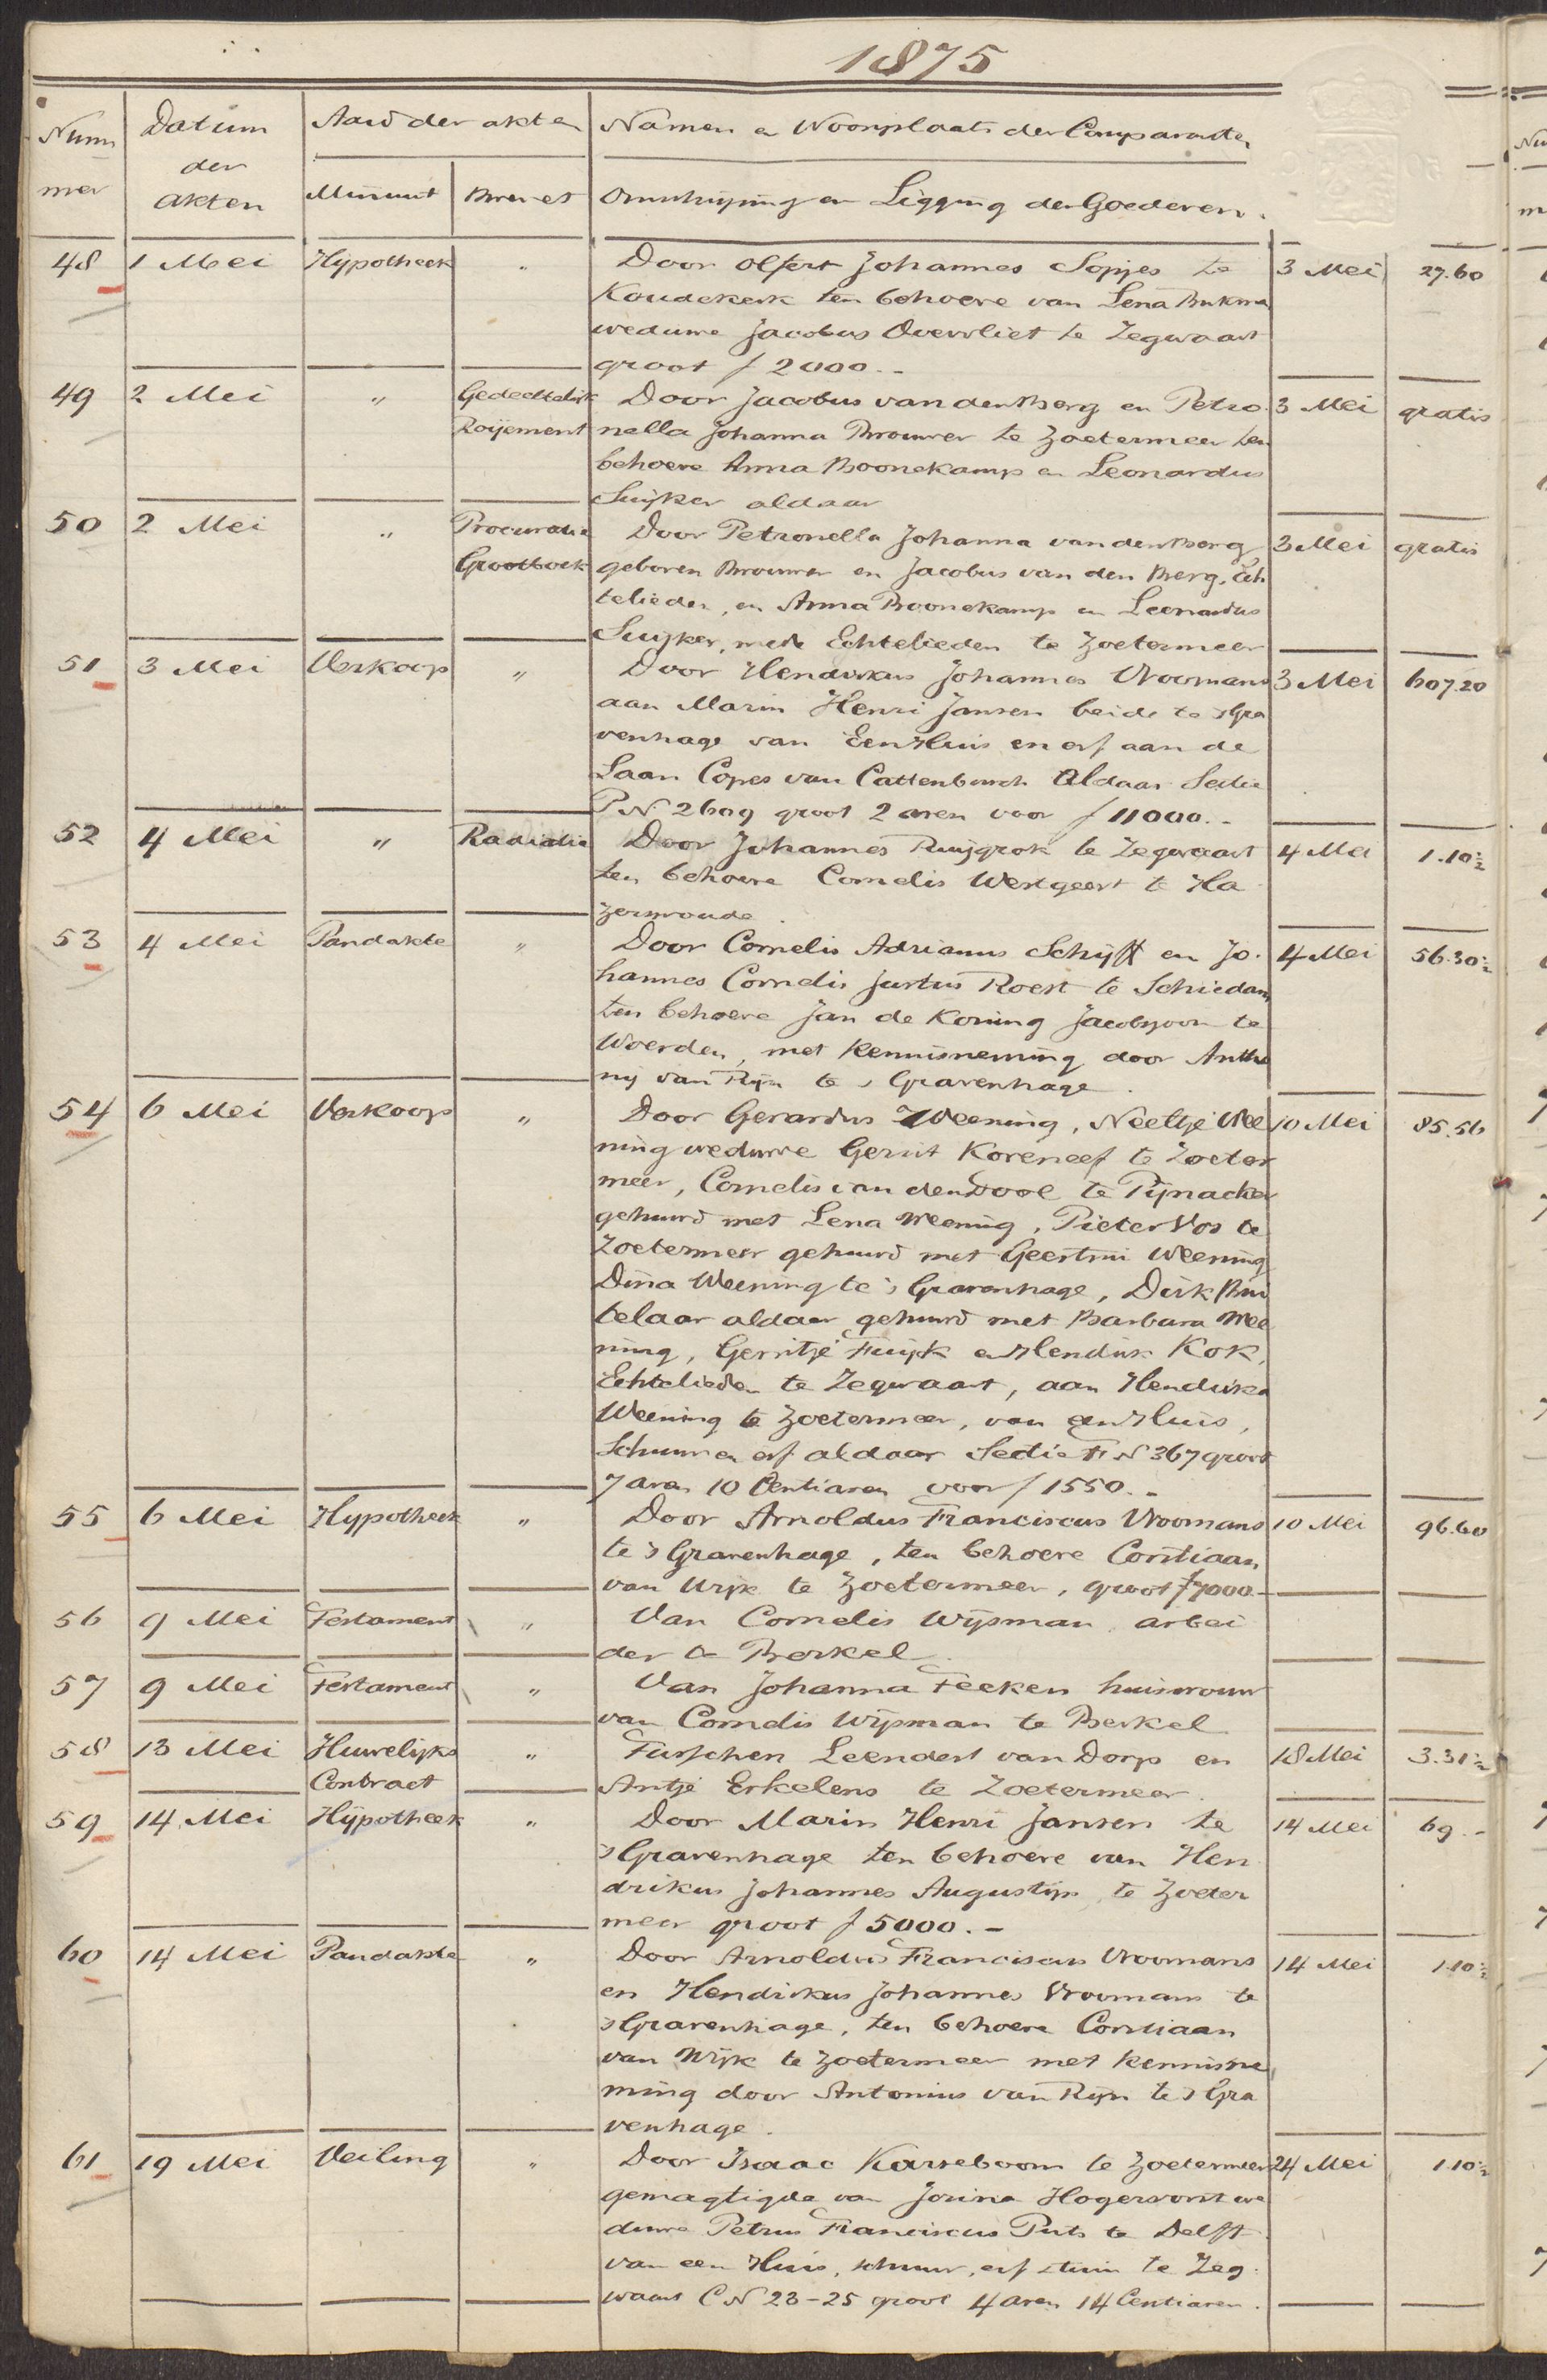 1875
Num
mer
Datum
der
akten
Aard der akten
Minuut
Brevet
Namen en Woonplaats der Comparanten
Omschrijving en Ligging der Goederen.
48 1 Mei Hypotheek " Door Olfert Johannes Sopjes te 3 Mei 27.60
Koudekerk ten behoeve van Lena
weduwe Jacobus Oververliet te Zegwaart
groot f 2000.-
49 2 Mei " Gedeeltelijk Door Jacobus van den Berg en Petro 3 Mei gratis
Roijement nella Johanna Brouwer te Zoetermeer ten
behoeve Anna Boonekamp en Leonardus
Suijker aldaar
50 2 Mei " Procuratie Door Petronella Johanna van den Berg 3 Mei gratis
Grootboek geboren Brouwer en Jacobus van den Berg, Ech
telieden, en Anna Boonekamp en Leonardus
Suijker, mede Echtelieden te Zoetermeer
51 3 Mei Verkoop " Door Hendrikus Johannes Vroomans 3 Mei 607.20
aan Marin Henri Jansen beide te 's Gra
venhage van Een Huis en erf aan de
Laan Copes van Cattenburch Aldaar Sectie
P N 2609 groot 2 aren voor f 11000.-
52 4 Mei " Radiatie Door Johannes Ruijgrok te Zegwaart 4 Mei 1.10½
ten behoeve Cornelis Westgeest te Ha
zerswoude.
53 4 Mei Pandakte " Door Cornelis Adrianus Schijff en Jo. 4 Mei 56.30½
hannes Cornelis Justus Roest te Schiedam
ten behoeve Jan de Koning Jacobszoon te
Woerden, met kennisneming door Antho
nij van Rijn te 's Gravenhage.
54 6 Mei Verkoop " Door Gerardus Weening, Neeltje Wee 10 Mei 85.56
ning weduwe Gerrit Koreneef te Zoeter
meer, Cornelis van den Dool te Pijnacker
gehuwd met Lena Weening, Pieter Vos te
Zoetermeer gehuwd met Geertrui Weening
Dina Weening te 's Gravenhage, Dirk Bui
telaar aldaar gehuwd met Barbara Wee
ning, Gerritje Fuijk en Hendrik Kok,
Echtelieden te Zegwaart, aan Hendrika
Weening te Zoetermeer, van een Huis,
Schuur en erf aldaar Sectie F N 367 groot
7 aren 10 Centiaren voor f 1550.-
55 6 Mei Hypotheek " Door Arnoldus Franciscus Vroomans 10 Mei 96.60
te 's Gravenhage, ten behoeve Corstiaan
van Wijk te Zoetermeer, groot f 7000.-
56 9 Mei Testament " Van Cornelis Wijsman arbei
der te Berkel.
57 9 Mei Testament " Van Johanna Feeken huisvrouw
van Cornelis Wijsman te Berkel
58 13 Mei Huwelijks " Tusschen Leendert van Dorp en 18 Mei 3.31½
Contract Antje Erkelens te Zoetermeer.
59 14 Mei Hypotheek " Door Marin Henri Jansen te 14 Mei 69.-
's Gravenhage ten behoeve van Hen
drikus Johannes Augustijn te Zoeter
meer groot f 5000.-
60 14 Mei Pandakte " Door Arnoldus Franciscus Vroomans 14 Mei 1.10½
en Hendrikus Johannes Vroomans te
's Gravenhage, ten behoeve Corstiaan
van Wijk te Zoetermeer met kennisne
ming door Antonius van Rijn te 's Gra
venhage.
61 19 Mei Veiling " Door Isaac Karreboom te Zoetermeer 24 Mei 1.10½
gemagtigde van Josina Hogervorst we
duwe Petrus Franciscus Puts te Delft
van een Huis, schuur, erf en tuin te Zeg.
waart C N 23-25 groot 4 aren 14 Centiaren.